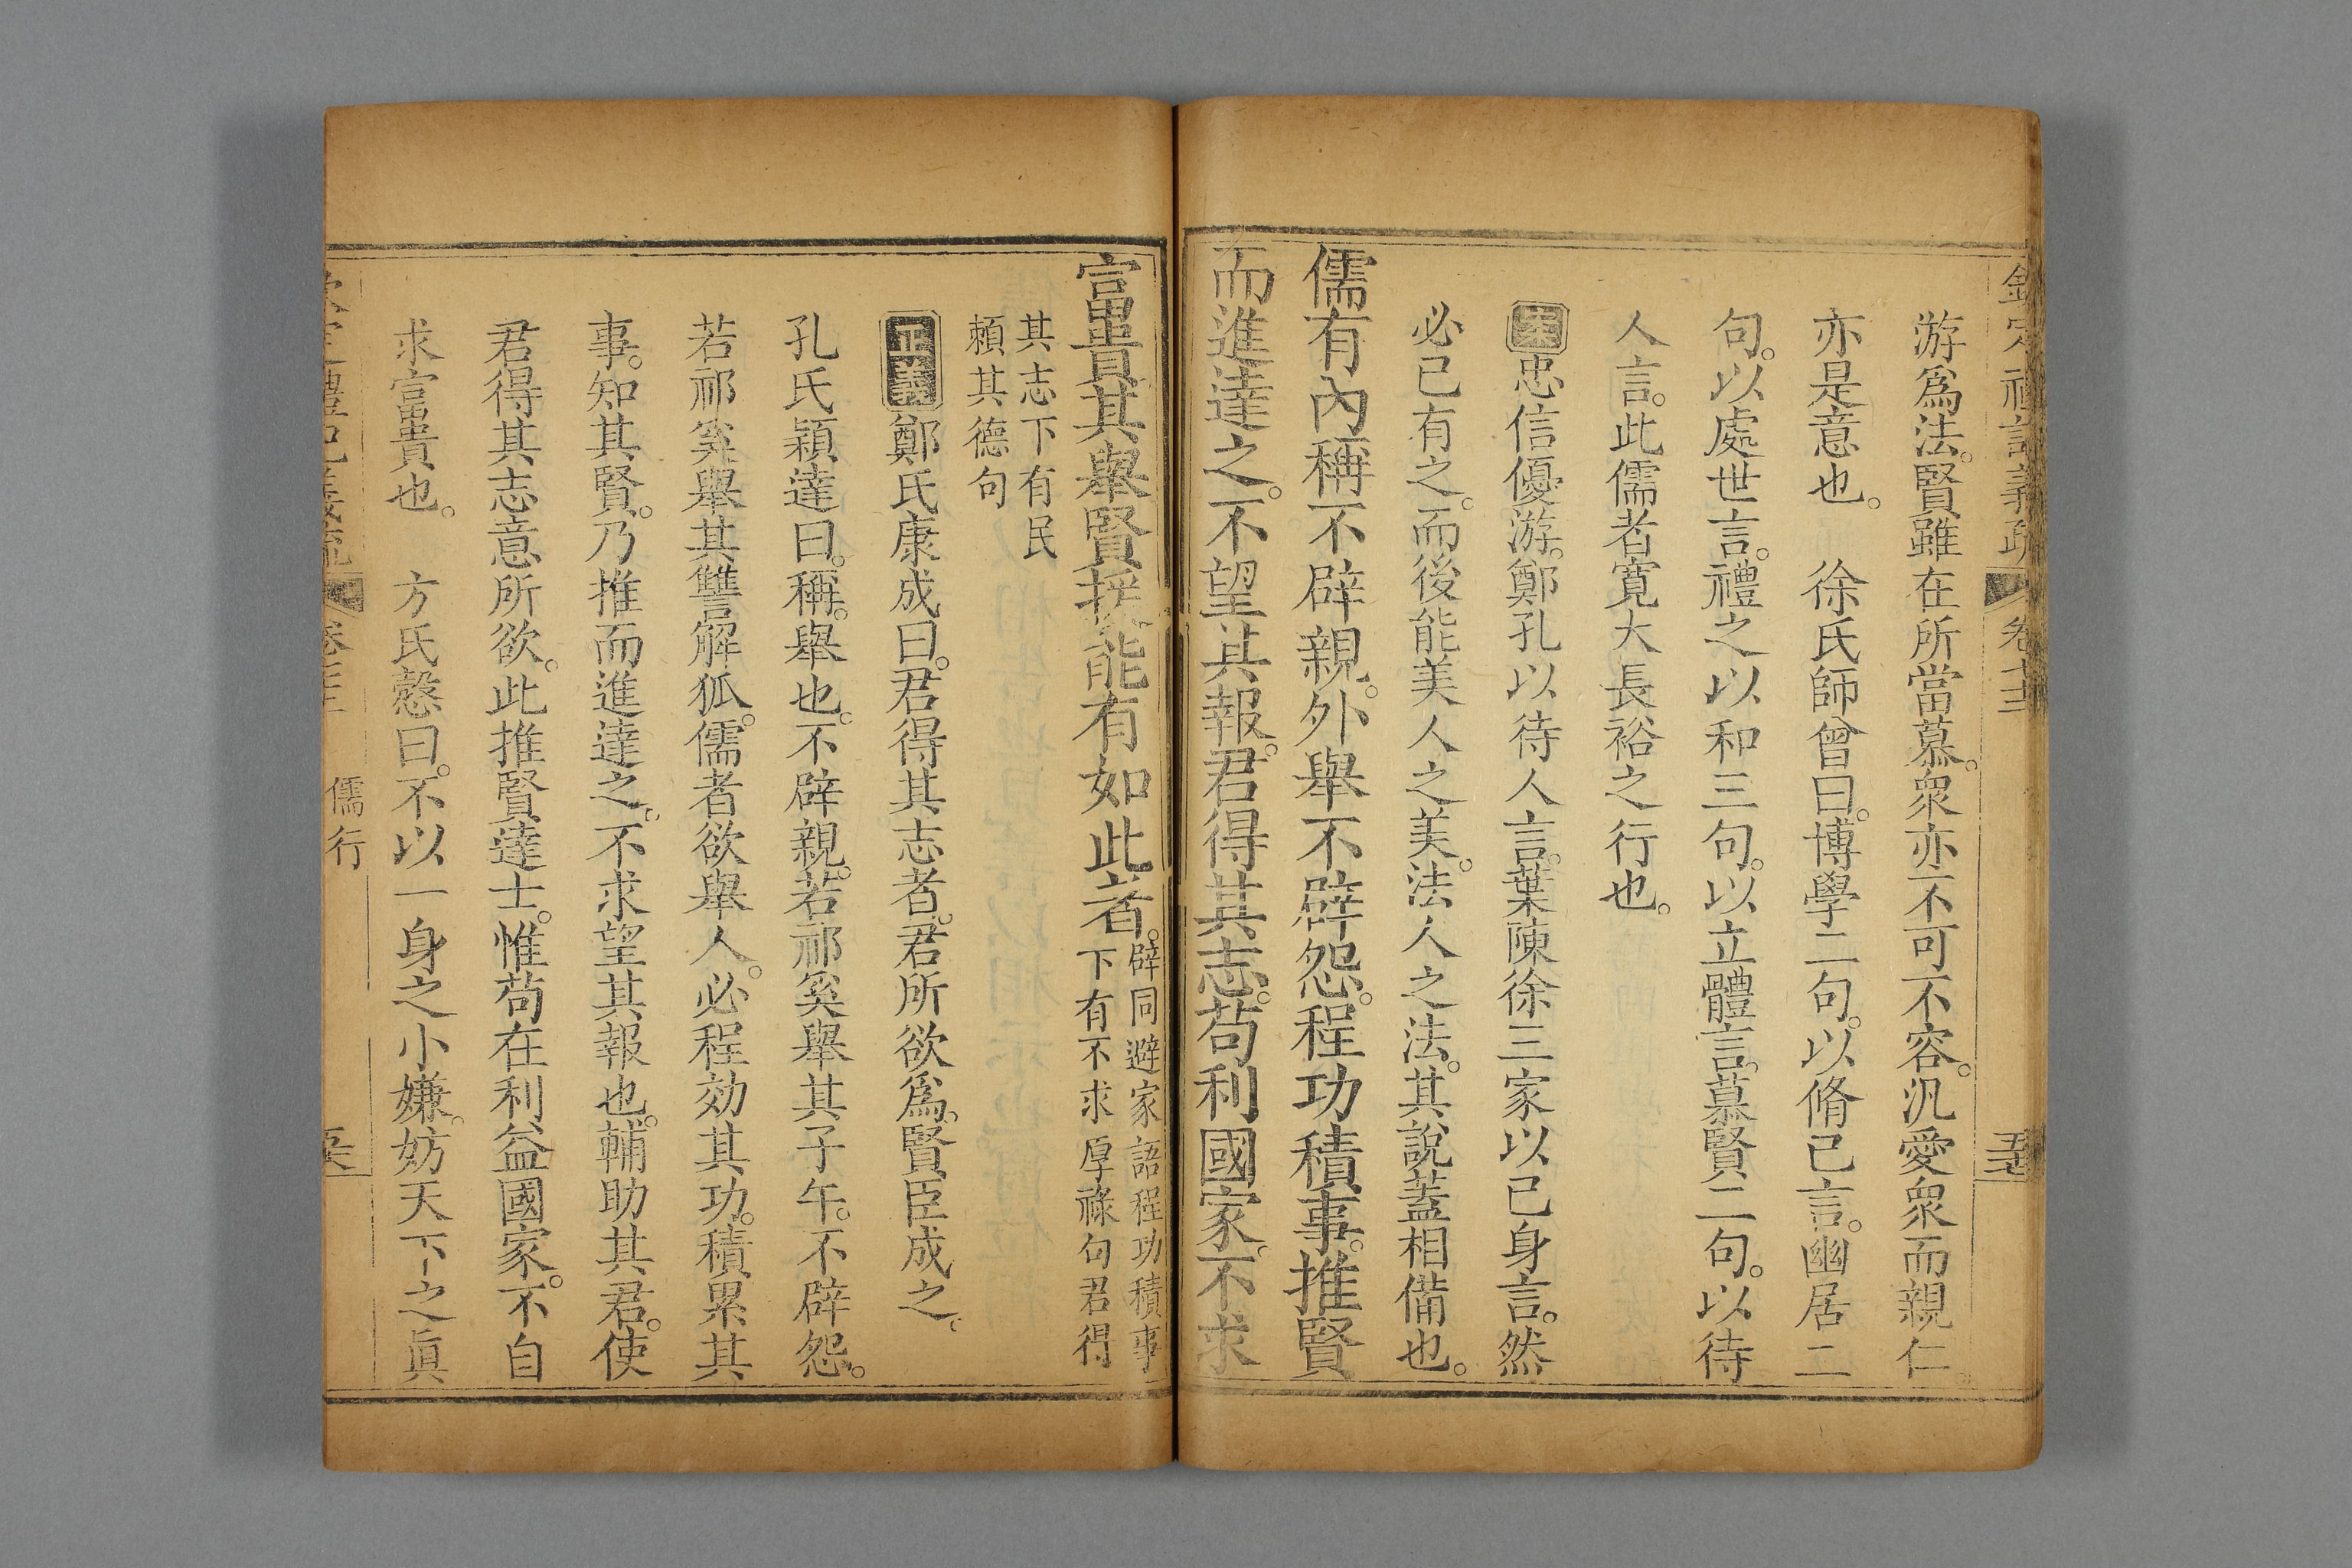 欽定禮記義疏 卷七十三
游爲法。賢雖在所當慕。衆亦不可不容。汎愛衆而親仁
亦是意也。 徐氏師曾曰。博學二句。以脩己言。幽居二
句。以處世言。禮之以和三句。以立體言。慕賢二句。以待
人言。此儒者寬大長裕之行也。
案忠信優游。鄭孔以待人言。葉陳徐三家以已身言。然
必已有之。而後能美人之美。法人之法。其說蓋相備也。
儒有內稱不辟親。外舉不辟怨。程功積事。推賢
而進達之。不望其報。君得其志。苟利國家。不求
富貴其舉賢援能有如此者。辟同避家語程功積事
下有不求厚祿句君得
其志下有民
賴其德句
正義鄭氏康成曰。君得其志者。君所欲爲。賢臣成之。
孔氏穎達曰。稱。舉也。不辟親。若祁奚舉其子午。不辟怨。
若祁奚舉其讐解狐。儒者欲舉人。必程効其功。積累其
事。知其賢。乃推而進達之。不求望其報也。輔助其君。使
君得其志意所欲。此推賢達士。惟苟在利益國家。不自
求富貴也。 方氏慤曰。不以一身之小嫌。妨天下之眞
儒行